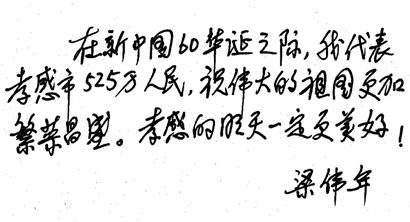 在新中国60华诞之际，我代表
孝感市525万人民，祝伟大的祖国更加
繁荣昌盛。孝感的明天一定更美好！
梁伟年